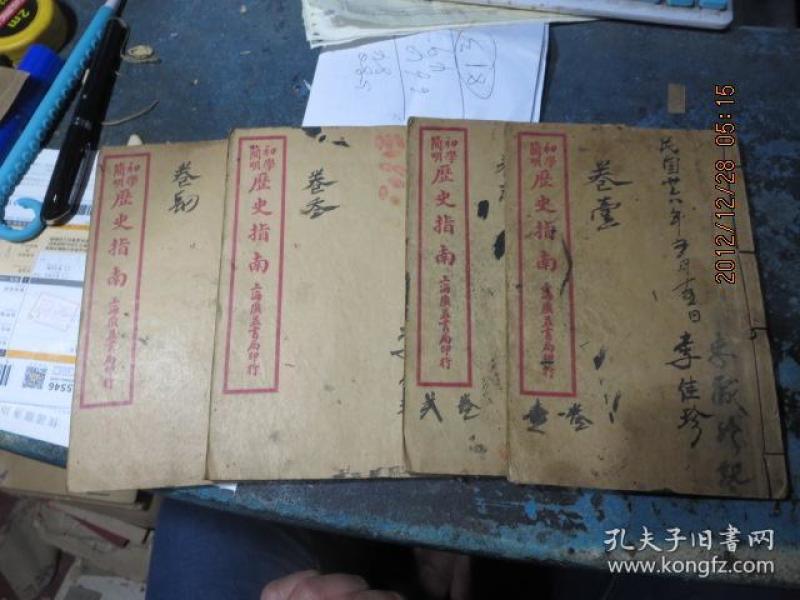 初學
簡明
歷史指南
上海廣益書局印行
卷四
初學
簡明
歷史指南
上海廣益書局印行
卷叁
初學
簡明
歷史指南
上海廣益書局印行
卷
初學
簡明
歷史指南
上海廣益書局印行
卷壹
民国
李佳珍
318
2012/12/28 05:15
2m
5546
孔夫子旧书网
www.kongfz.com